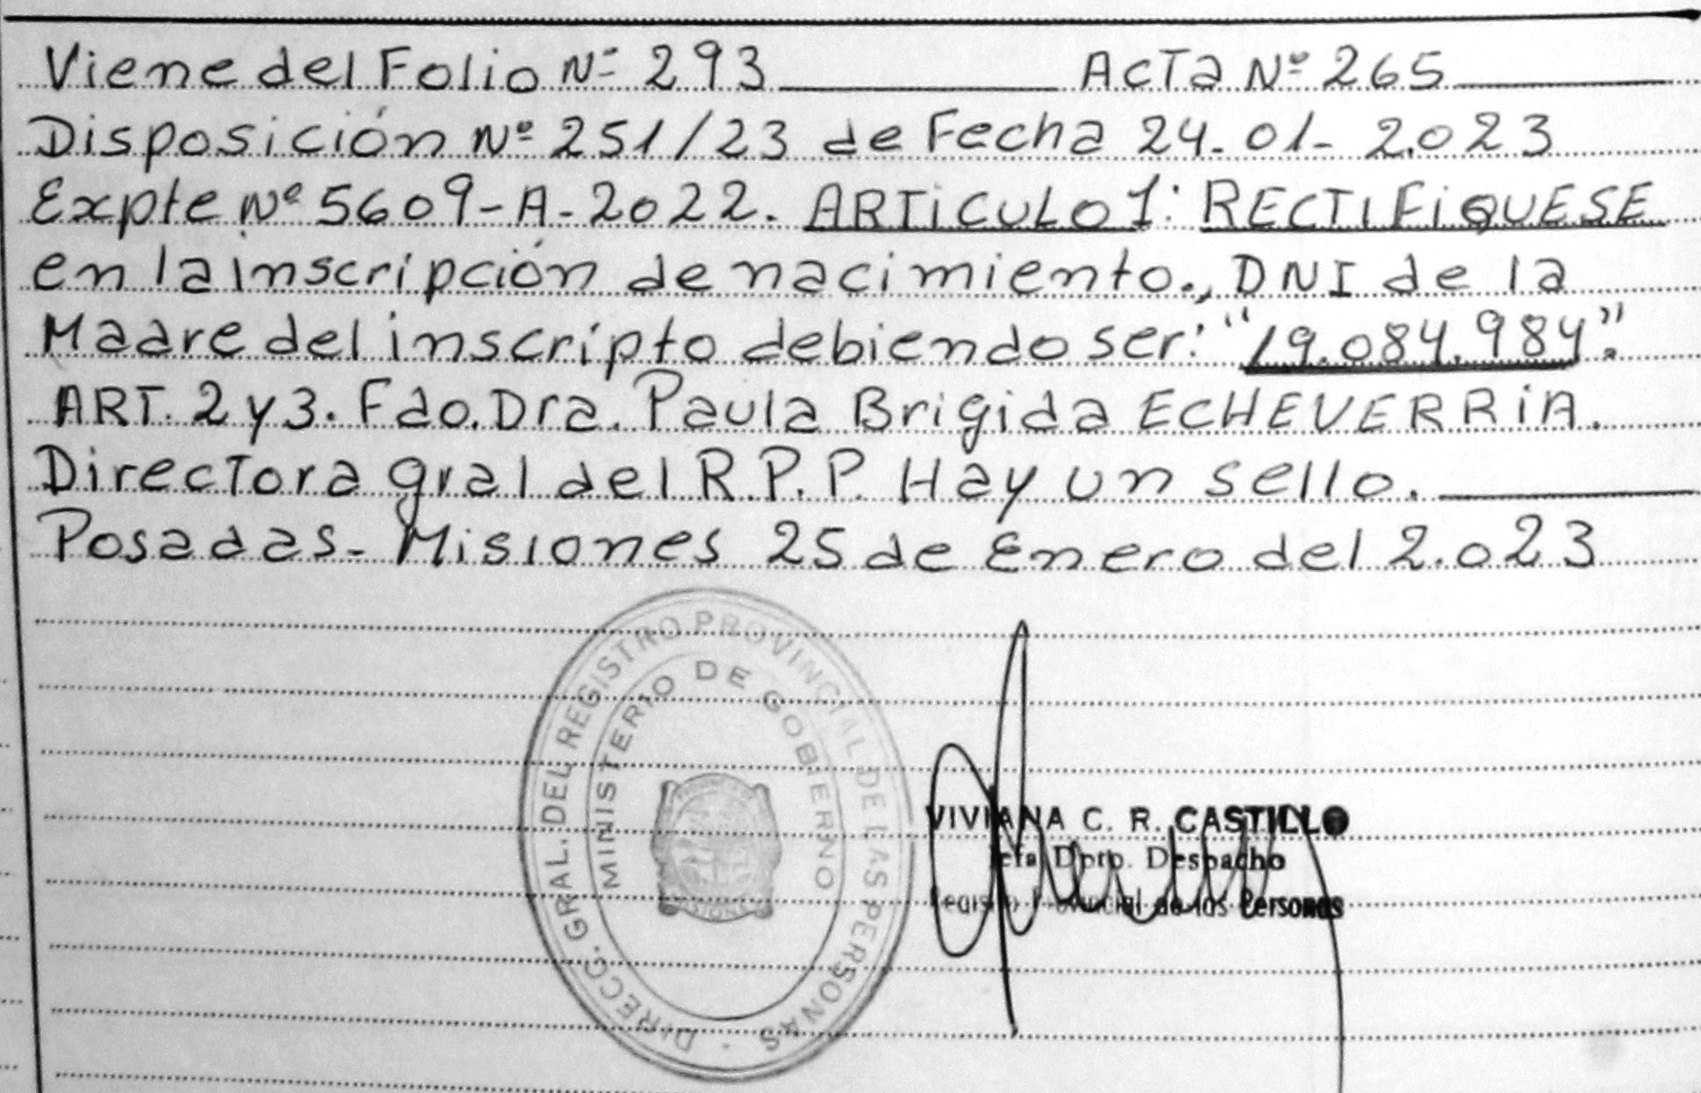 Viene del Folio Nº 293 ActA Nº 265
Disposición Nº 251/23 de Fecha 24-01-2.023
Expte Nº 5609-A-2022. ARTiCULO 1: RECTIFiQUESE
en la inscripción de nacimiento., DNI de la
Madre del inscripto debiendo ser: "19.084.984".
ART. 2 y 3. Fdo. Dra. Paula Brigida ECHEVERRiA.
Directora gral del R.P.P. Hay un sello.
Posadas- Misiones 25 de Enero del 2.023
DIRECC. GRAL. DEL REGISTRO PROVINCIAL DE LAS PERSONAS
MINISTERIO DE GOBIERNO
VIVIANA C. R. CASTILLO
Jefa Dpto. Despacho
Registro Provincial de las Personas